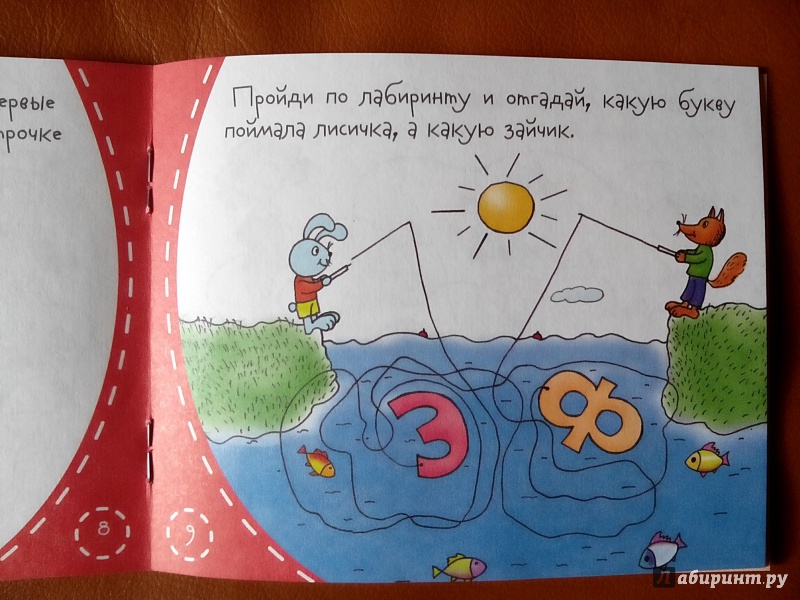 ервые
трочке
Пройди по лабиринту и отгадай, какую букву
поймала лисичка, а какую зайчик.
З
Ф
8
9
Лабиринт.ру